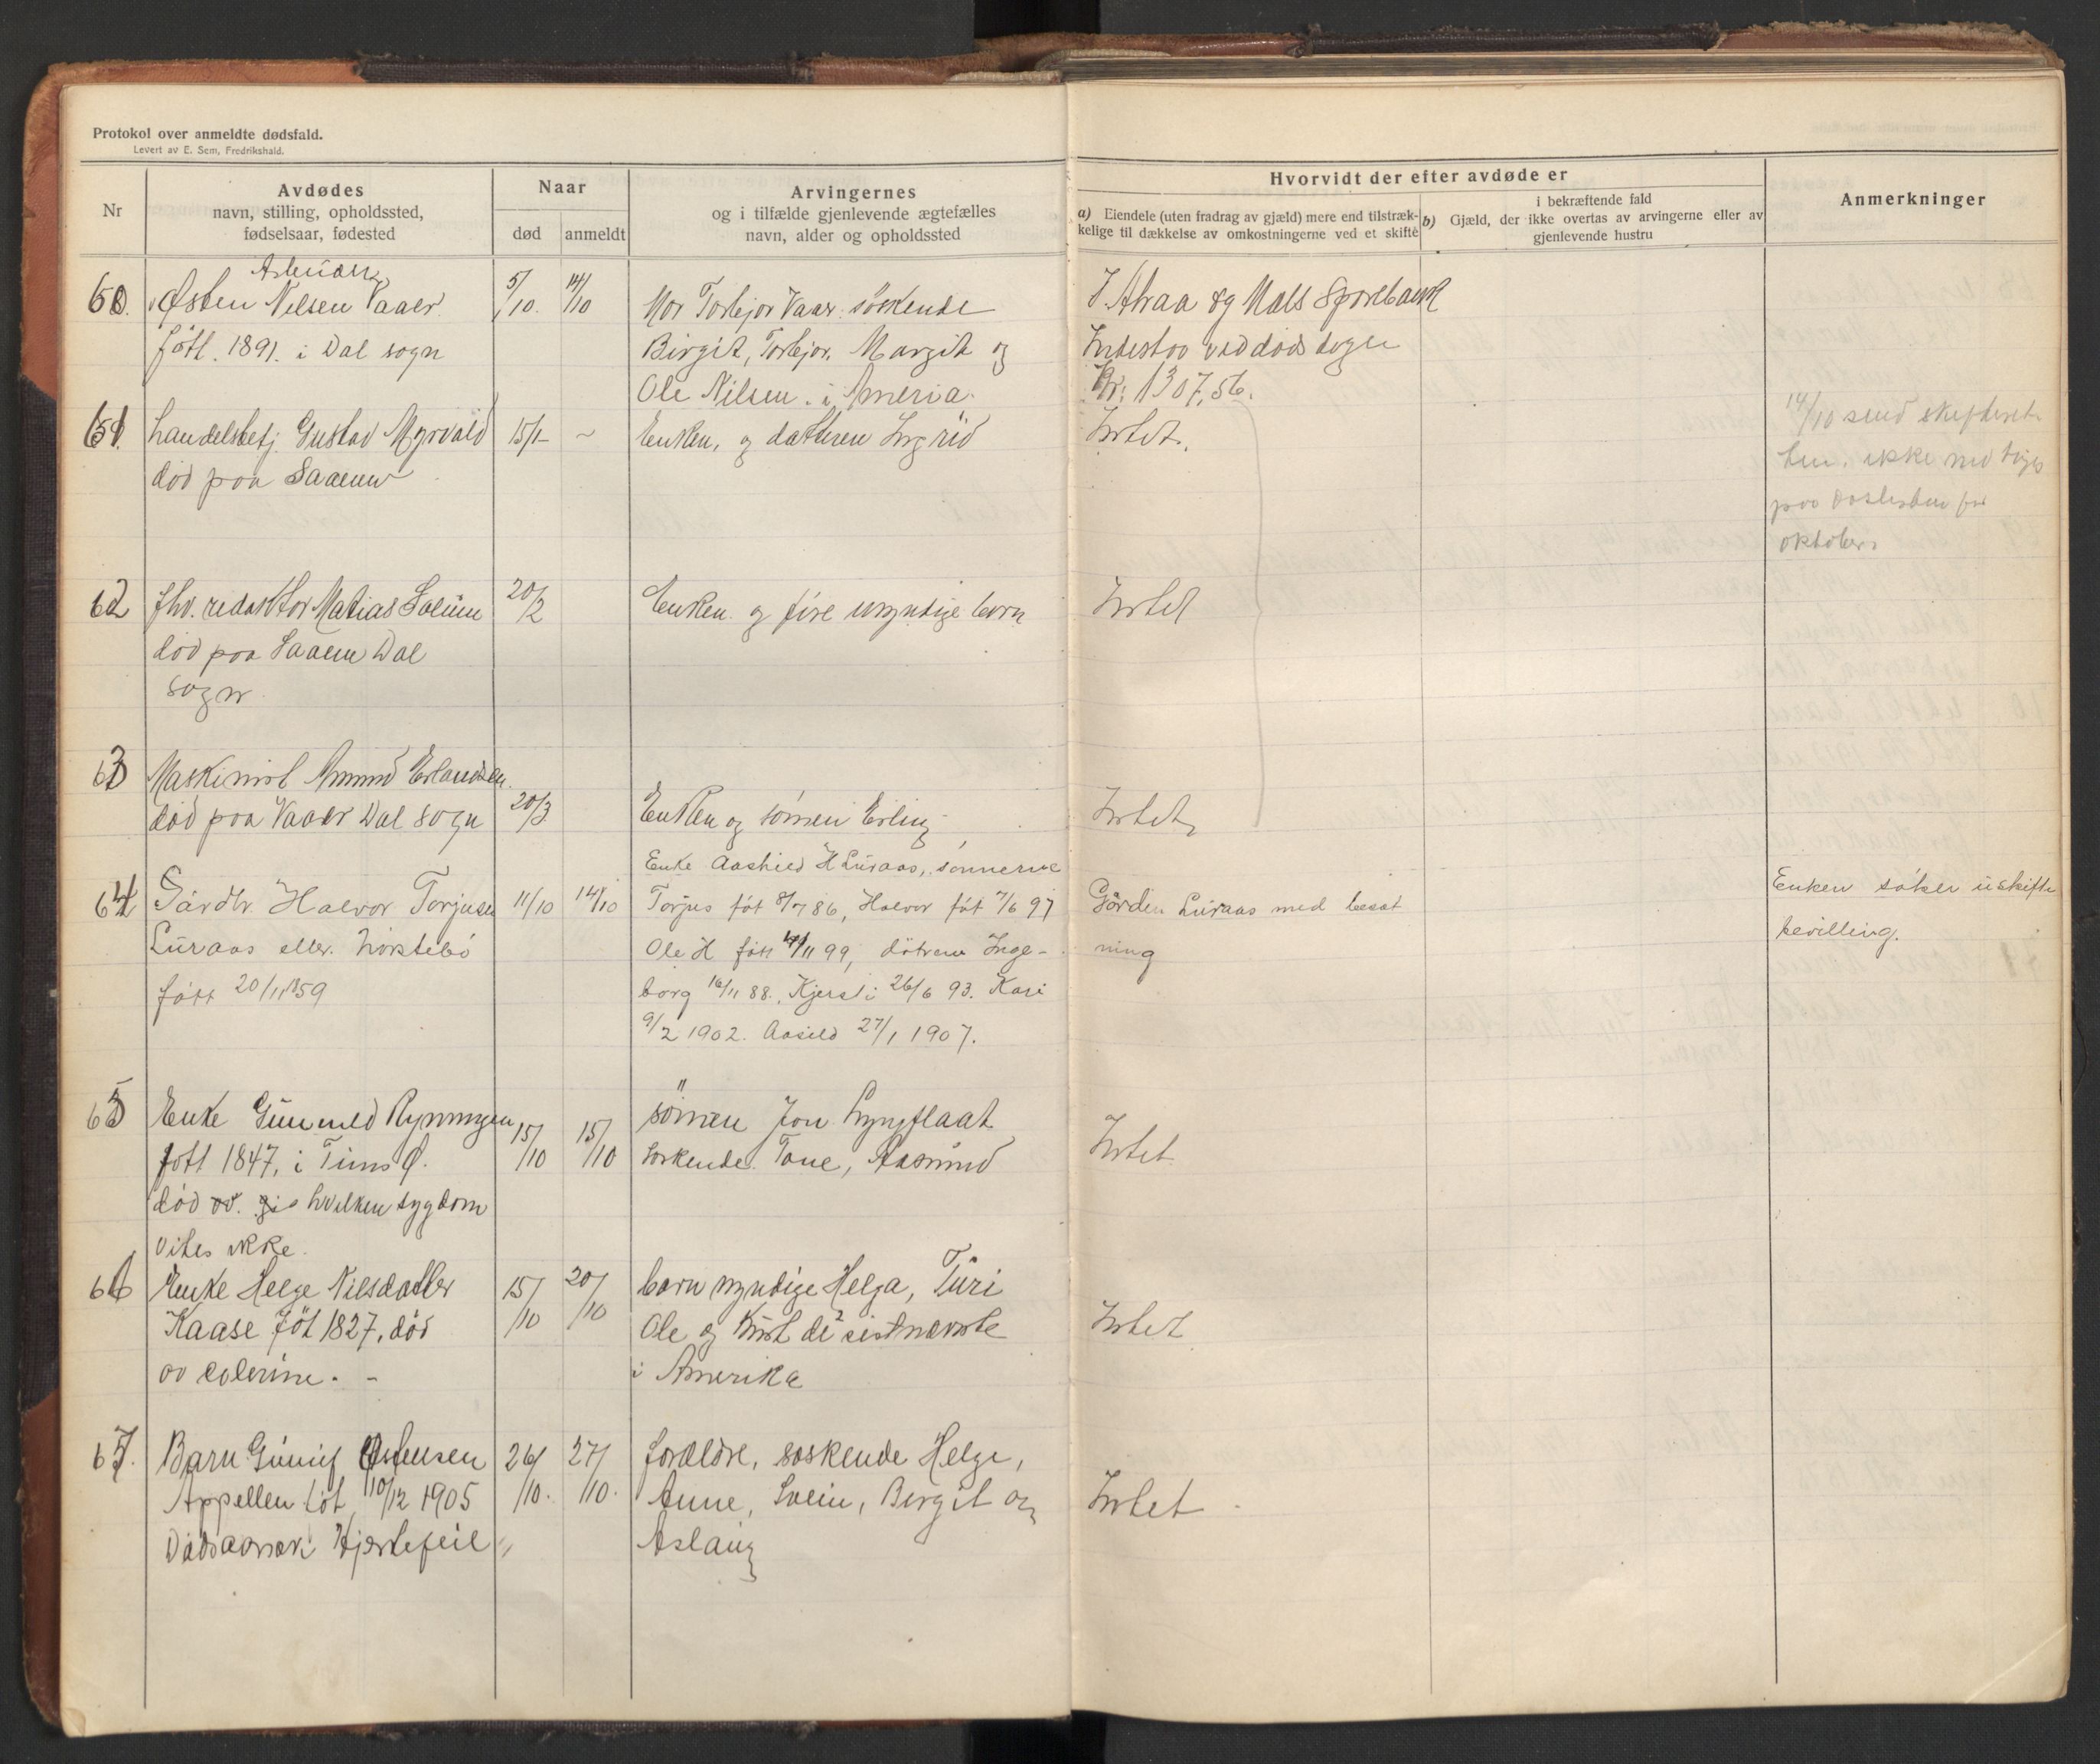 Protokol over anmeldte dødsfald.
Levert av E. Sem, Fredrikshald.
Nr
Avdødes
navn, stilling, opholdssted,
fødselsaar, fødested
Naar
død
anmeldt
Arvingernes
og i tilfælde gjenlevende ægtefælles
navn, alder og opholdssted
Hvorvidt der efter avdøde er
a) Eiendele (uten fradrag av gjæld) mere end tilstræk-
kelige til dækkelse av omkostningerne ved et skifte
i bekræftende fald
b) Gjæld, der ikke overtas av arvingerne eller av
gjenlevende hustru
Anmerkninger
60.
Østen Nilsen Vaaer
född. 1891. i Dal sogn
5/10.
14/10
Mor Torbjor Vaaer. söskende
Birgit, Torbjor, Margit og
Ole Nilsen. i Ameria.
I. Atraa og Mæls Sparebank
Indestaa ved døds dagen
Kr: 1307,56.
61.
handelsbetj. Gustav Myrvold
död paa Saaem
15/1
~
Enken, og datteren Ingrid
Intet.
14/10 send skifteret
ten. ikke
paa for
oktober
62
fhv. redaktør Matias Solum
död paa Saaem Dal
sogn
20/2
Enken og fire umyndige børn
Intet
63
Maskinist Amund Erlandsen
død paa Vaaer Dal sogn
20/3
Enken og sönnen Erling
Intet
64
Gårdbr. Halvor Torjusen
Luraas eller.
fött 20/11 1859
11/10
14/10
Enke Aashild H Luraas, sønnerne
Torjus föt 8/7 86, Halvor föt 7/6 97
Ole H fött 4/11 99, dötrene Inge-
borg 16/11 88., Kjersti 26/6 93. Kari
9/2 1902. Aasild 27/1 1907.
Gården Luraas med besæt
ning
Enken söker uskifte
bevilling.
65
Enke Gunnild Rynningen
fött 1847, i Tinns
död av. hvilken sygdom
vites ikke.
15/10
15/10
sönnen Jon Lyngflaat
söskende Tone, Aasmund
Intet
66
Enke Helge Nilsdatter
Kaase föt 1827, död
av colerine. -
15/10
20/10
barn myndige Helga, Turi
Ole og Knut de 2 sistnævnte
i Amerika
Intet
67.
Barn Gunuf Østensen
Appellen föt 10/12 1905
Dödsaarsak: Hjertefeil
26/10.
27/10.
foræeldre, soskende Helge,
Anne, Svein, Birgit og
Aslaug
Intet